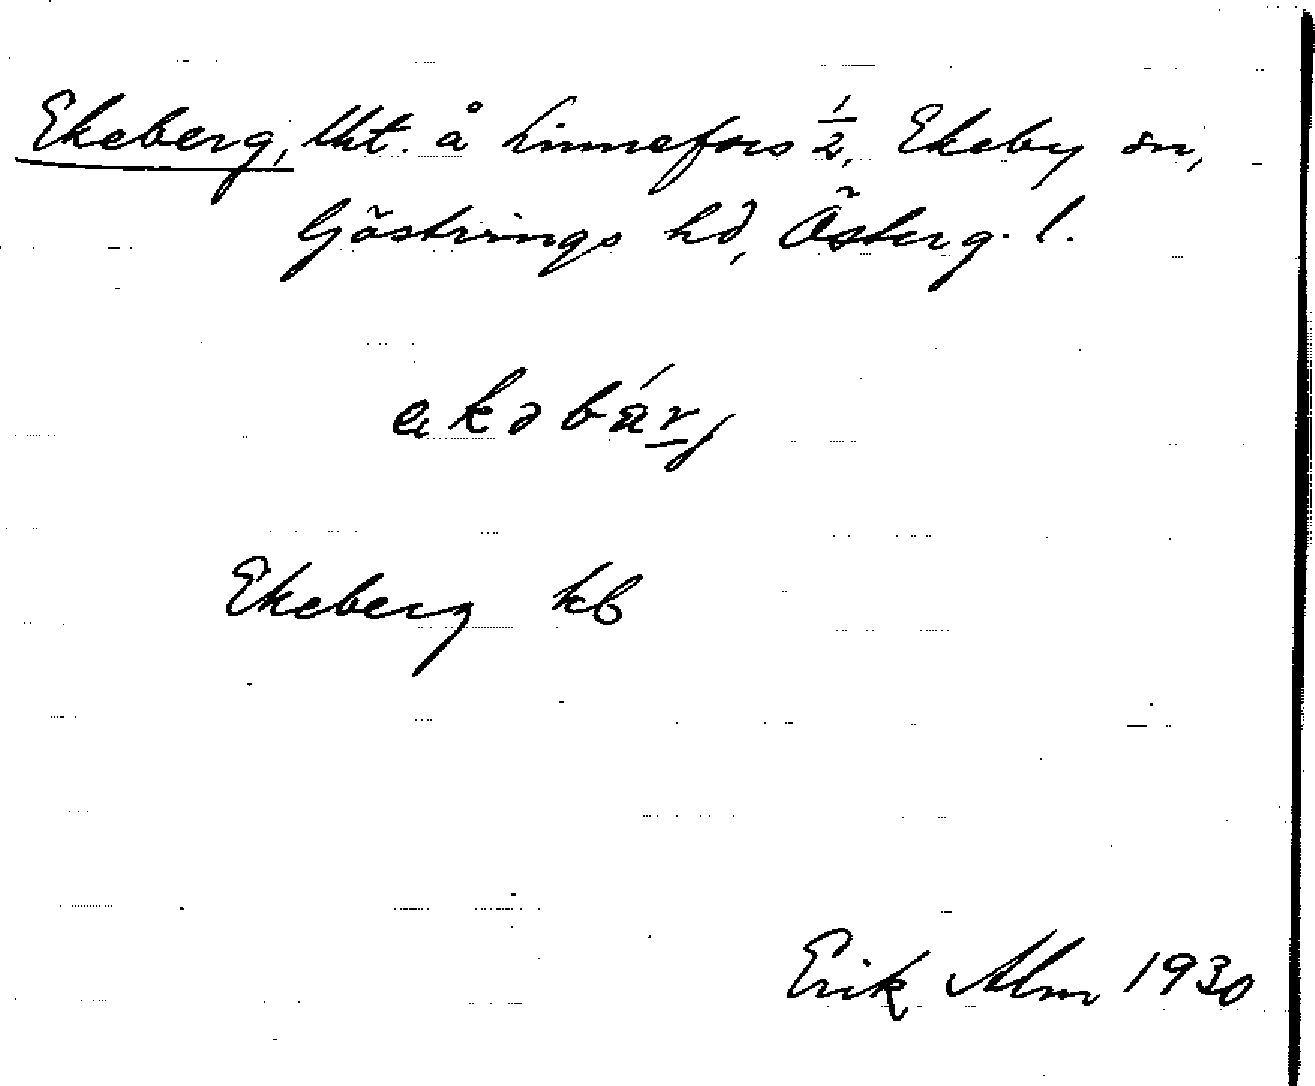 Ekeberg, lht. å Linnefors 1/2, Ekeby sn,
Göstrings hd, Österg. l.
Ekeberg kb
Erik Alm 1930